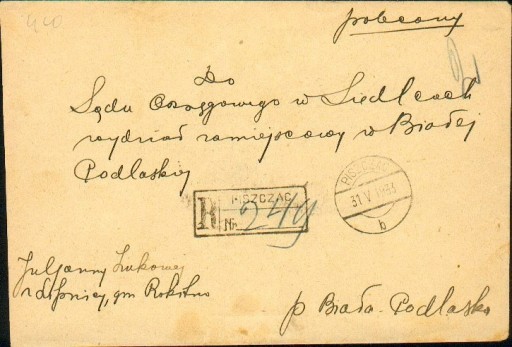 polecony
Do
Sądu Okręgowego w Siedlcach
wydział zamiejscowy w Białej
Podlaskiej
R PISZCZAC
Nr. 249
PISZCZAC
31 V 1933
b
Juljanny Żukowej
gm Rokitno
p Biała-Podlaska